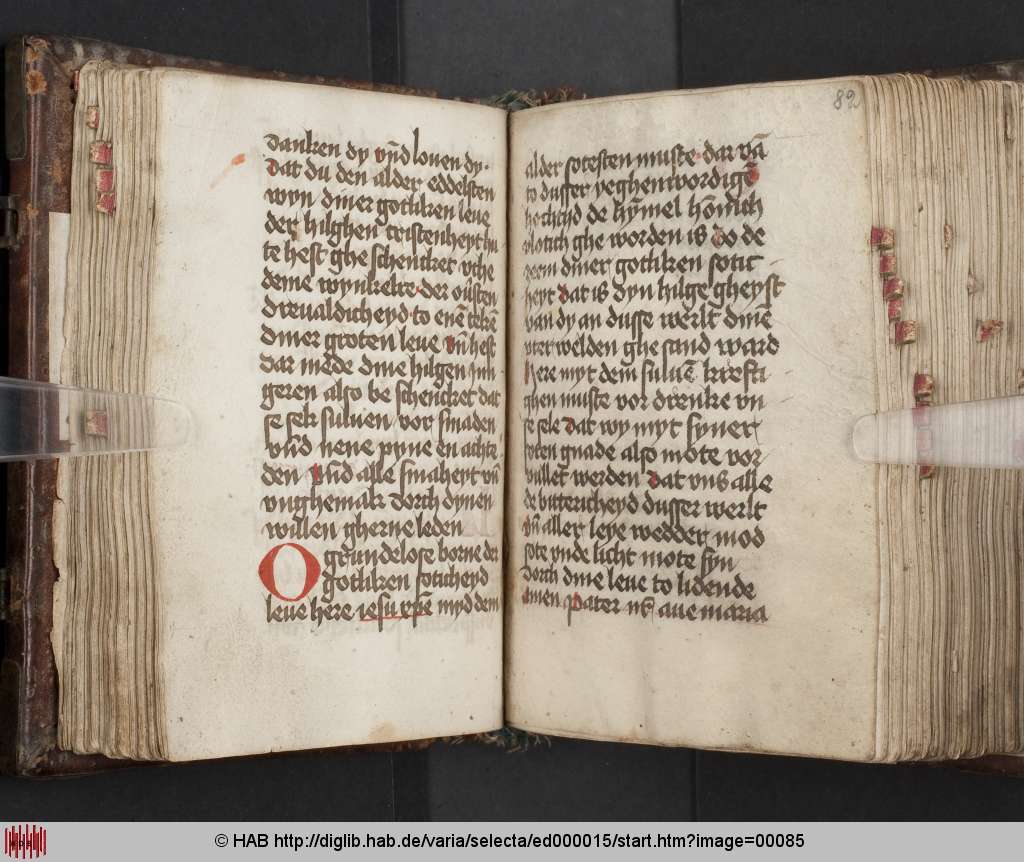 danken dy vn̄d louen dy·
dat du den alder eddelsten
wyn diner gotliken leue
der hilghen cristenheyt hu
te hest ghe schencket vthe
deme wynkelre der
dreualdicheyd to ene tekē
diner groten leue vn̄ hest
dar mede dine hilgen iun
geren also be schencket dat
se sek suluen vor smaden
vn̄d nene pyne en achte
den vnd alle smaheyt vn̄
vnghemak dorch dynen
willen gherne leden
O grundelose borne der
gotliken soticheyd
leue here iesu xp̄e myd dem
82
alder sotesten muste dar vā
to dusser yeghenwordigē
hochtyd de hȳmel
vlotich ghe worden is do de
diner gotliken sotic
heyt dat is dyn hilge gheyst
van dy an dusse werlt dine
vter welden ghe sand ward
here myt dem suluē krefti
ghen muste vor drenke vn
se sele dat wy myt syner
soten gnade also mote vor
vullet werden dat vns alle
de bittericheyd dusser werlt
vn̄ aller leye wedder mod
sote vnde licht mote syn
dorch dine leue to lidende
amen pater nr̄ aue maria
© HAB http://diglib.hab.de/varia/selecta/ed000015/start.htm?image=00085